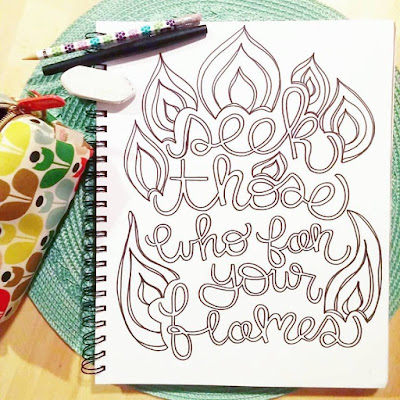 seek
those
who fan
your
flames